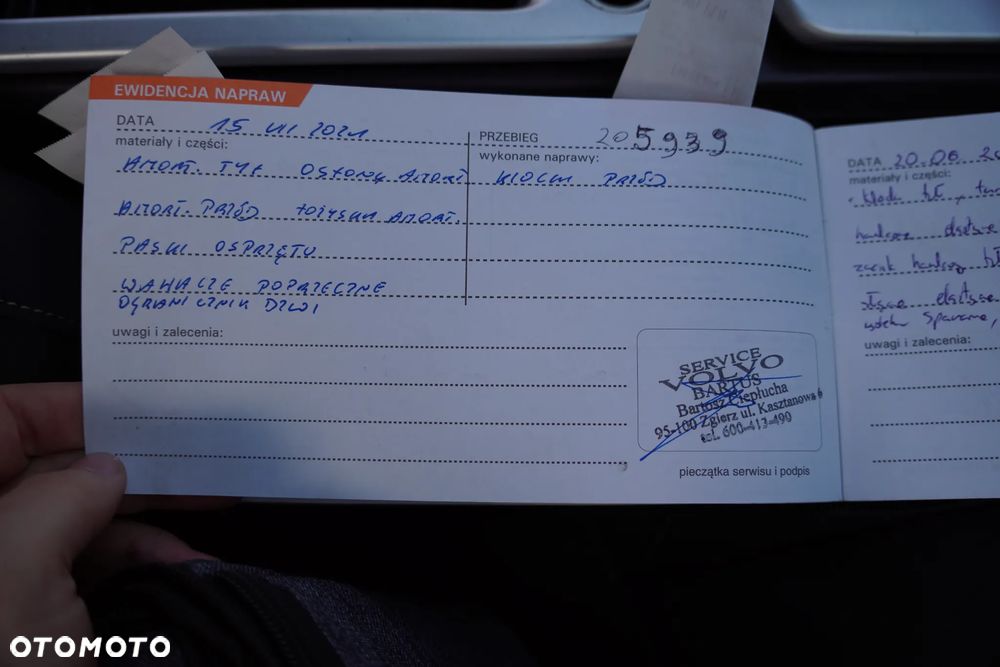 EWIDENCJA NAPRAW
DATA 15 VII 2021
PRZEBIEG 205939
materiały i części:
wykonane naprawy:
AMORT. TYŁ OSŁONY AMORT.
KLOCKI PRZÓD
AMORT. PRZÓD ŁOŻYSKA AMORT.
PASKI OSPRZĘTU
WAHACZE POPRZECZNE
OGRANICZNIK DRZWI
uwagi i zalecenia:
SERVICE
VOLVO
BARTUS
Bartosz Ciepłucha
95-100 Zgierz ul. Kasztanowa 6
tel. 600-413-490
pieczątka serwisu i podpis
DATA 20.06
materiały i części:
uwagi i zalecenia:
OTOMOTO